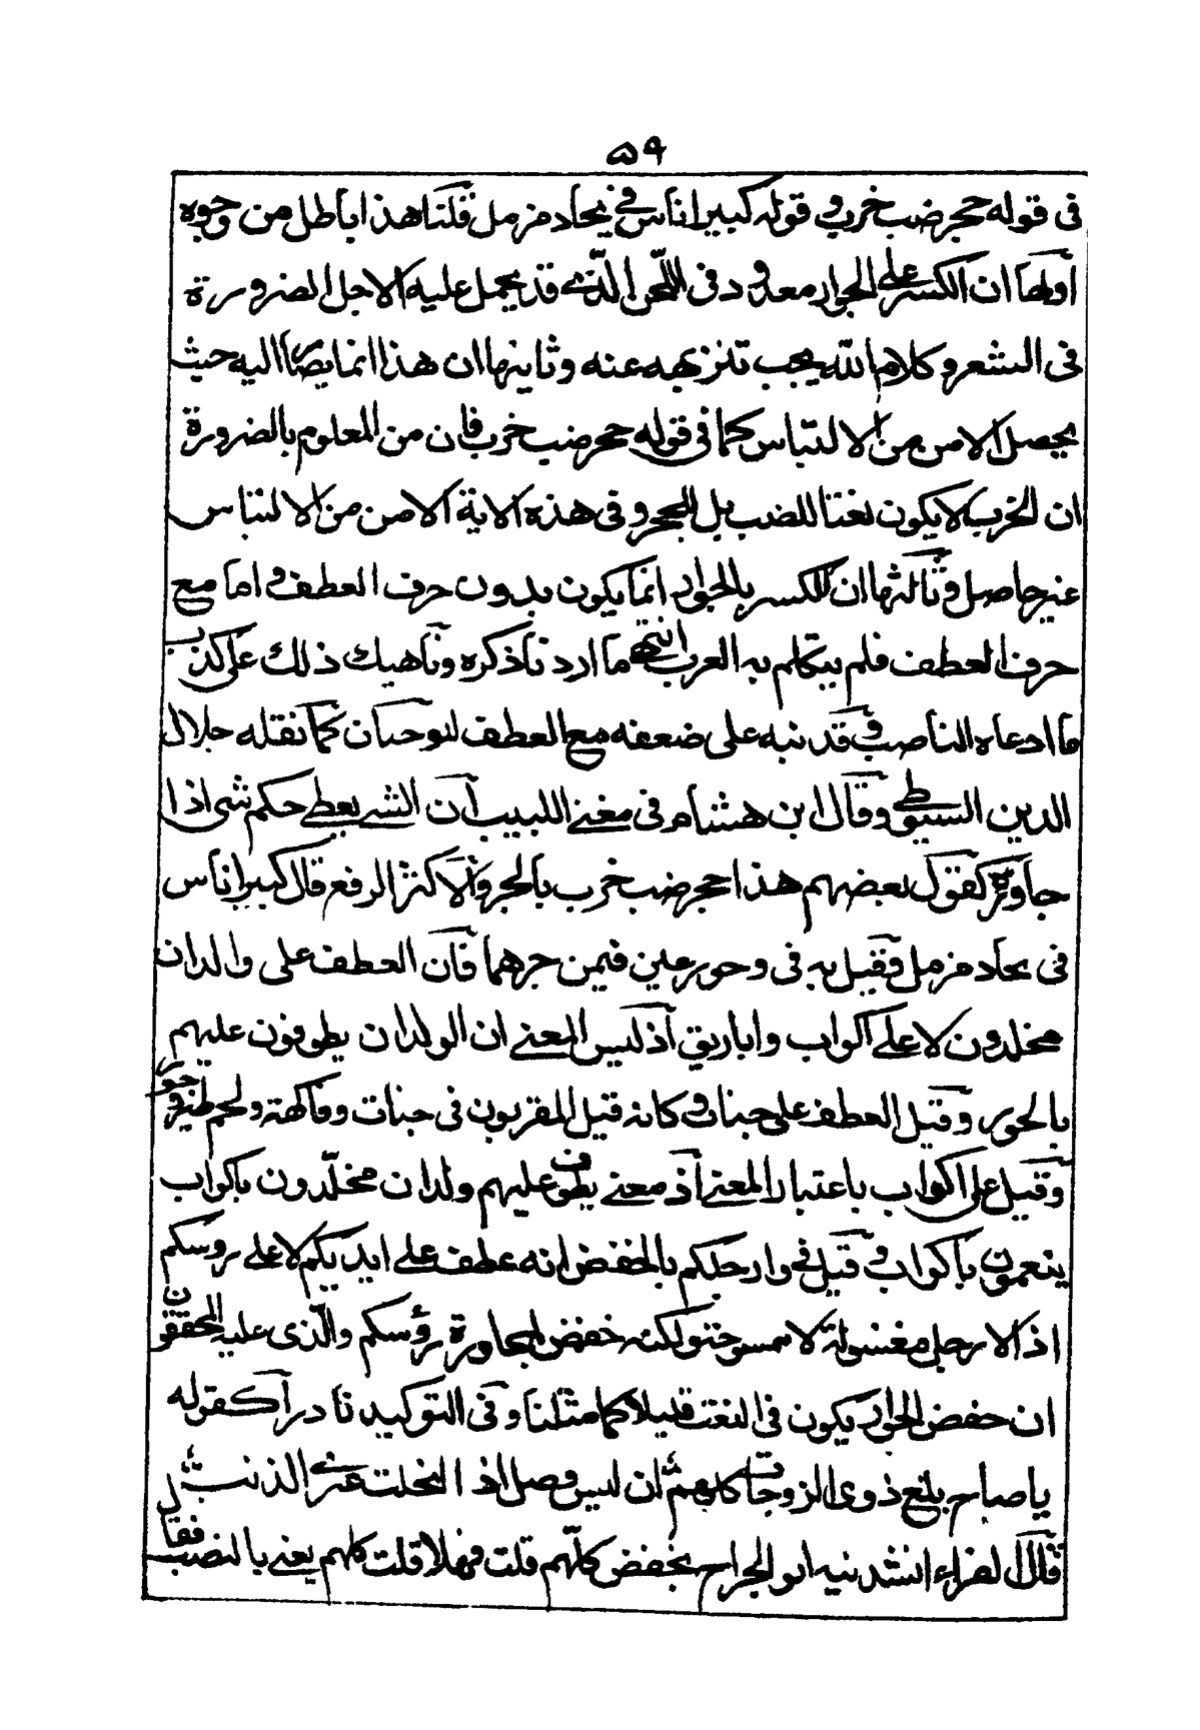 ٥٩
فی قوله حجر ضب خرب و قوله کبیر اناس فی بجاد مزمل قلنا هذا باطل من وجوه
اولها ان الکسر علی الجوار معدود فی اللحن الذی قد یحمل علیه لاجل الضرورة
فی الشعر و کلام الله یجب تنزیهه عنه و ثانیها ان هذا انما یصار الیه حیث
یحصل الامن من الالتباس کما فی قوله حجر ضب خرب فان من المعلوم بالضرورة
ان الخرب لا یکون نعتا للضب بل للحجر و فی هذه الایة الامن من الالتباس
غیر حاصل و ثالثها ان الکسر بالجوار انما یکون بدون حرف العطف و اما مع
حرف العطف فلم یتکلم به العرب انتهی ما اردنا ذکره و ناهیك ذلك علی کذب
ما ادعاه الناصب و قد نبه علی ضعفه مع العطف ابو حیان کما نقله جلال
الدین السیوطی و قال ابن هشام فی مغنی اللبیب ان الشی یعطی حکم شی اذا
جاوره کقول بعضهم هذا حجر ضب خرب بالجر و الاکثر الرفع قال کبیر اناس
فی بجاد مزمل و قیل به فی و حور عین فیمن جرهما فان العطف علی ولدان
مخلدون لا علی اکواب و اباریق اذ لیس المعنی ان الولدان یطوفون علیهم
بالحور و قیل العطف علی جنات و کانه قیل المقربون فی جنات و فاکهة و لحم طیر و حور
و قیل علی اکواب باعتبار المعنی اذ معنی یطوف علیهم ولدان مخلّدون باکواب
ینعمون باکواب و قیل فی و ارجلکم بالخفض انه عطف علی ایدیکم لا علی رؤسکم
اذ الارجل مغسولة لا ممسوحة و لکنه خفض لمجاورة رؤسکم و الّذی علیه المحققون
ان خفض الجوار یکون فی النعت قلیلا کما مثلنا و فی التوکید نادرا کقوله
یا صاح بلغ ذوی الزوجات کلهم ان لیس وصل اذ انحلت عری الذنب
قال الفراء انشدنیه ابو الجراح بخفض کلّهم قلت فهلا قلت کلهم یعنی بالنصب فقال